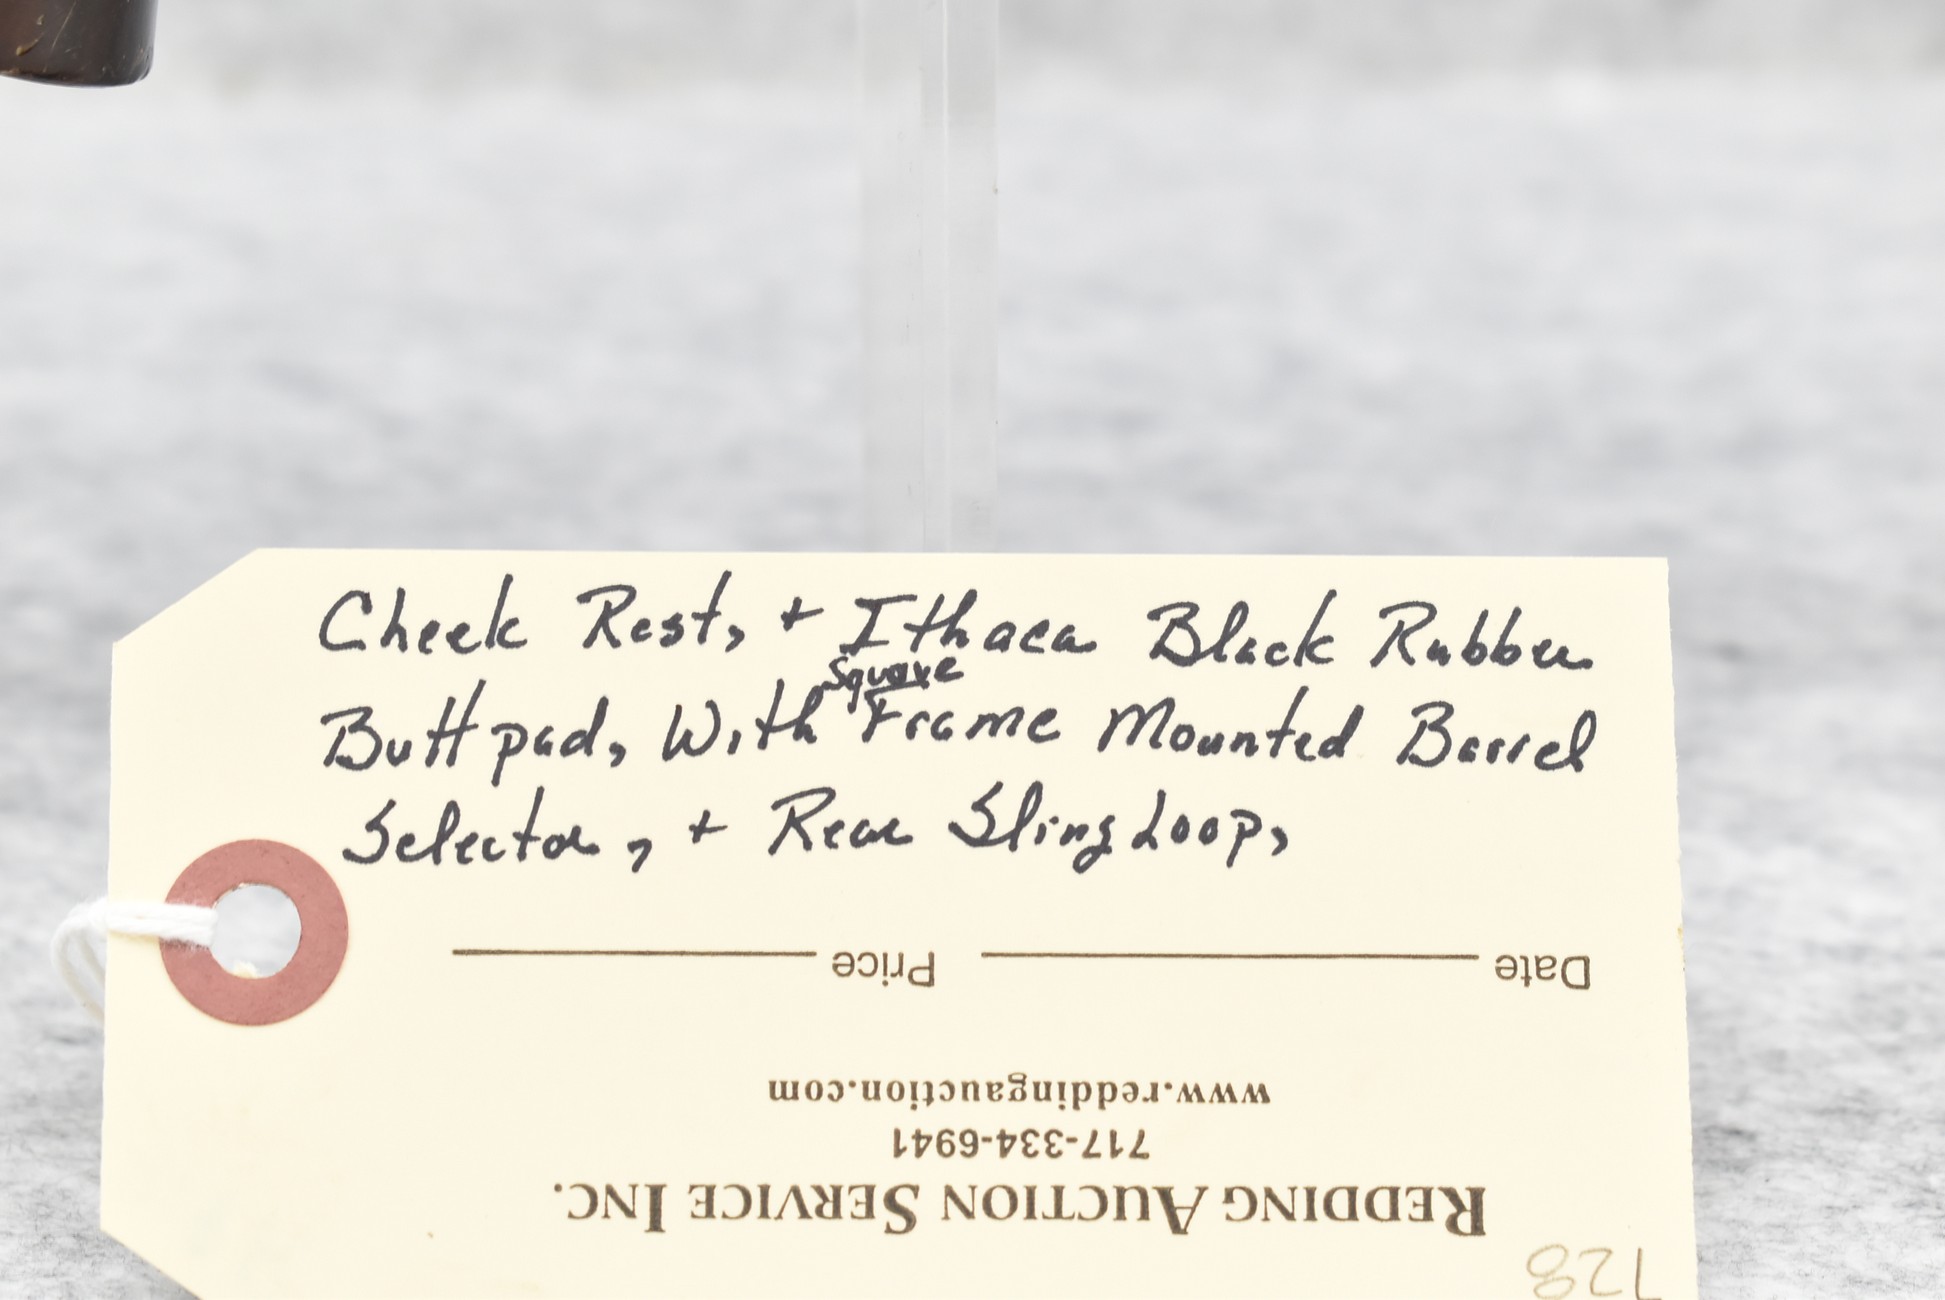 Cheek Rest, + Ithaca Black Rubber
Butt pad, With Square Frame Mounted Barrel
Selector, + Rear Sling Loop,
Date Price
www.reddingauction.com
717-334-6941
REDDING AUCTION SERVICE INC.
728